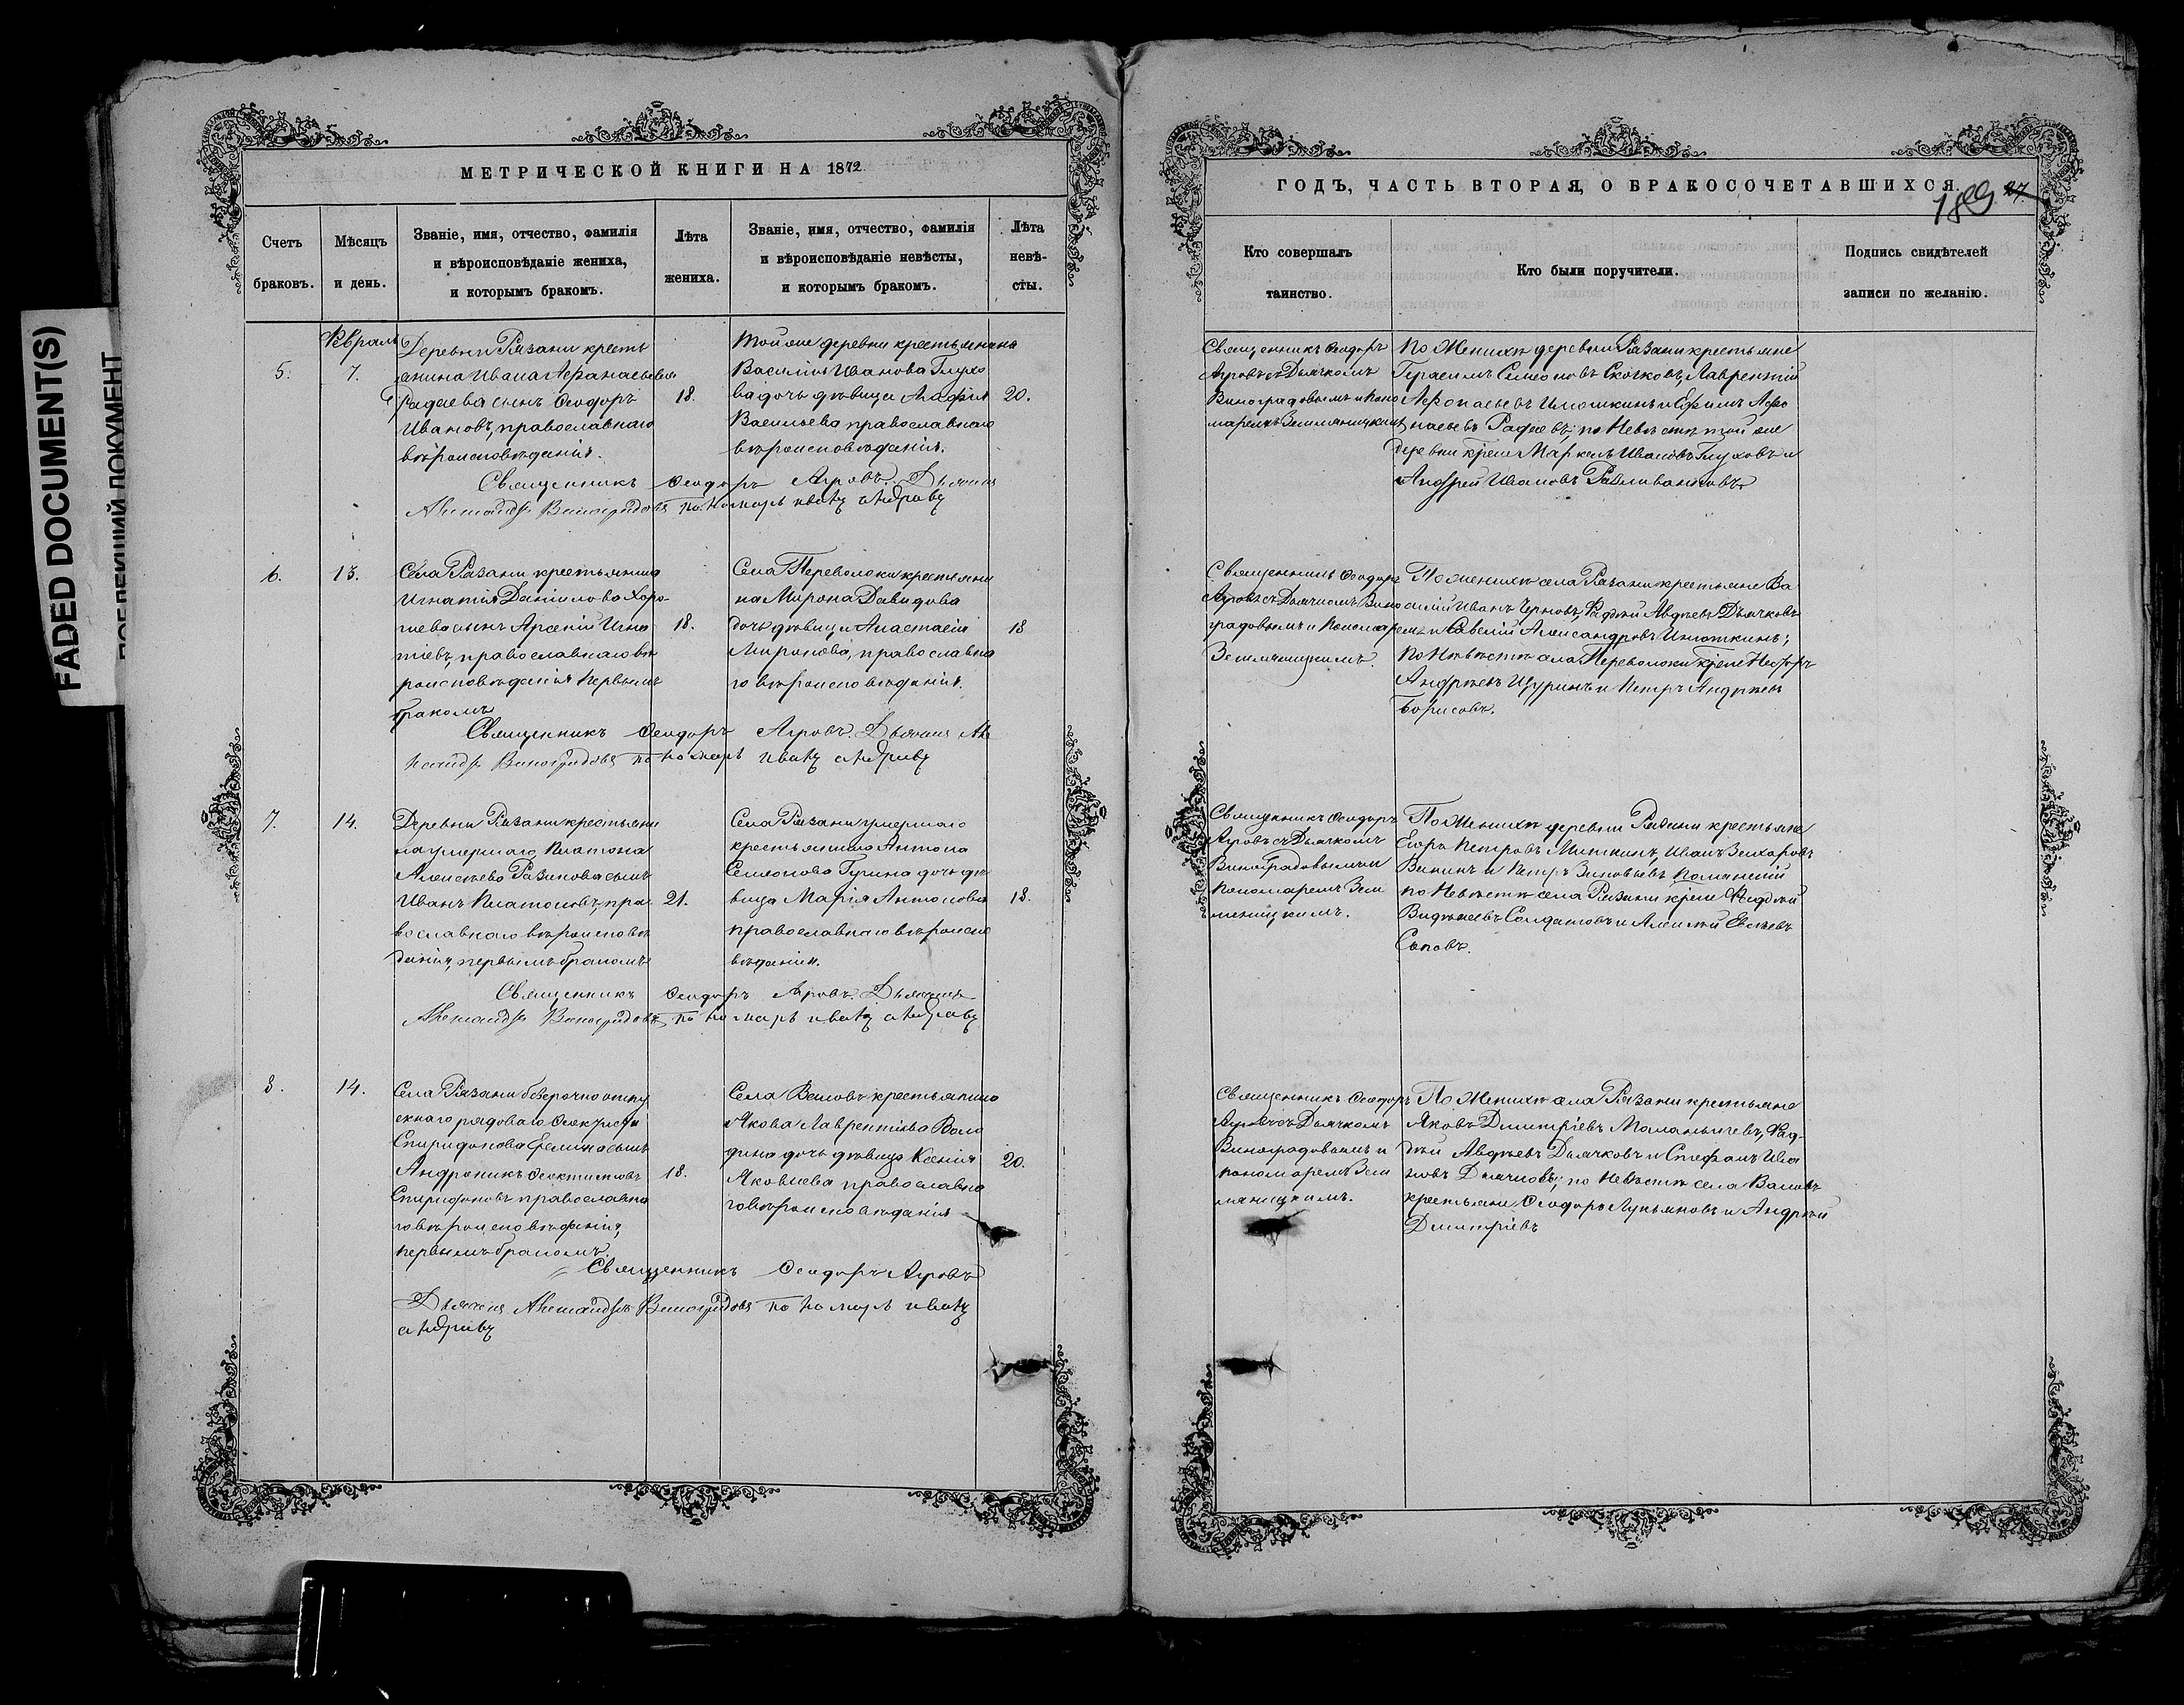 FADED DOCUMENT(S)
МЕТРИЧЕСКОЙ КНИГИ НА 1872
Счетъ
браковъ.
Мѣсяцъ
и день.
Званіе, имя, отчество, фамилія
и вѣроисповѣданіе жениха,
и которымъ бракомъ.
Лѣта
жениха.
Званіе, имя, отчество, фамилія
и вѣроисповѣданіе невѣсты,
и которымъ бракомъ.
Лѣта
невѣ-
сты.
5.
Февраль
7.
Деревни Рязани кресть
янина Ивана Афанасьева
Фадаева сынъ Ѳеодоръ
Ивановъ, православнаго
вѣроисповѣданія.
18.
Той же деревни крестьянина
Василія Иванова Глухо
ва дочь дѣвица Агафія
Васильева православнаго
вѣроисповѣданія.
20.
Священникъ Ѳеодоръ Агровъ. Дьячекъ
Александръ Виноградовъ пономарь
6.
13.
Села Рязани крестьянина
Игнатія Даніилова Хоро-
шева сынъ Арсеній Игна
тіевъ, православнаго вѣ
роисповѣданія первымъ
бракомъ
18.
Села Переволоки крестьяни
на Мирона Давидова
дочь дѣвица Анастасія
Миронова, православна
го вѣроисповѣданія.
18
Священникъ Ѳеодоръ Агровъ. Дьячекъ Але
ксандръ Виноградовъ пономарь
7.
14.
Деревни Рязани крестьяни
на умершаго Платона
Алексѣева Разинова сынъ
Иванъ Платоновъ, пра
вославнаго вѣроисповѣ
данія, первымъ бракомъ
21.
Села Рязани умершаго
крестьянина Антона
Семенова Гурина дочь дѣ
вица Марія Антонова
православнаго вѣроиспо
вѣданія.
18.
Священникъ Ѳеодоръ Агровъ. Дьячекъ
Александръ Виноградовъ пономарь
8.
14.
Села Рязани безсрочно отпу
скнаго рядоваго Ѳеоктиста
Спиридонова сынъ
Андроникъ Ѳеоктистовъ
Спиридоновъ православна
го вѣроисповѣданія,
первымъ бракомъ.
18.
Села Валовъ крестьянина
Якова Лаврентіева Воло
дина дочь дѣвица Ксенія
Яковлева православна
го вѣроисповѣданія
20.
Священникъ Ѳеодоръ Агровъ
Дьячекъ Александръ Виноградовъ пономарь
ГОДЪ, ЧАСТЬ ВТОРАЯ, О БРАКОСОЧЕТАВШИХСЯ.
189
27.
Кто совершалъ
таинство.
Кто были поручители.
Подпись свидѣтелей
записи по желанію.
Священникъ Ѳеодоръ
Агровъ съ Дьячкомъ
Виноградовымъ и поно
маремъ Земляницкимъ
По Женихѣ деревни Рязани крестьяне
Герасимъ Симеоновъ Скачковъ, Лаврентій
Афонасьевъ Илюшкинъ и Ефимъ Афо
насьевъ Фадаевъ; по Невѣстѣ той же
деревни крест Маркелъ Ивановъ Глуховъ и
Андрей Ивановъ
Священникъ Ѳеодоръ
Агровъ съ Дьячкомъ Вино
градовымъ и Пономаремъ
Земляницкимъ.
По женихѣ села Рязани крестьяне Ва
силій Иванъ Черновъ, Фаддей Авдѣевъ Дьячковъ
и Савелій Александровъ Инюткинъ;
По Невѣстѣ села Переволоки крест
Андрѣевъ Щуринъ и Петръ Андрѣевъ
Борисовъ.
Священникъ Ѳеодоръ
Агровъ съ Дьячкомъ
Виноградовымъ и
Пономаремъ Зем
ляницкимъ.
По Женихѣ деревни Рязани крестьяне
Егоръ Петровъ Миткинъ, Иванъ Захаровъ
и Петръ Зиновьевъ
по Невѣстѣ села Рязани крест Фаддей
Солдатовъ и Алексѣй Евсѣевъ
Священникъ Ѳеодоръ
Агровъ съ Дьячкомъ
Виноградовымъ и
пономаремъ Зем
ляницкимъ.
По Женихѣ села Рязани крестьяне
Яковъ Дмитріевъ Маланьичевъ, Фад-
дей Авдѣевъ Дьячковъ и Стефанъ Ива
новъ Дьячковъ; по Невѣстѣ села Валовъ
крестьяне Ѳеодоръ Лукьяновъ и Андрей
Дмитріевъ